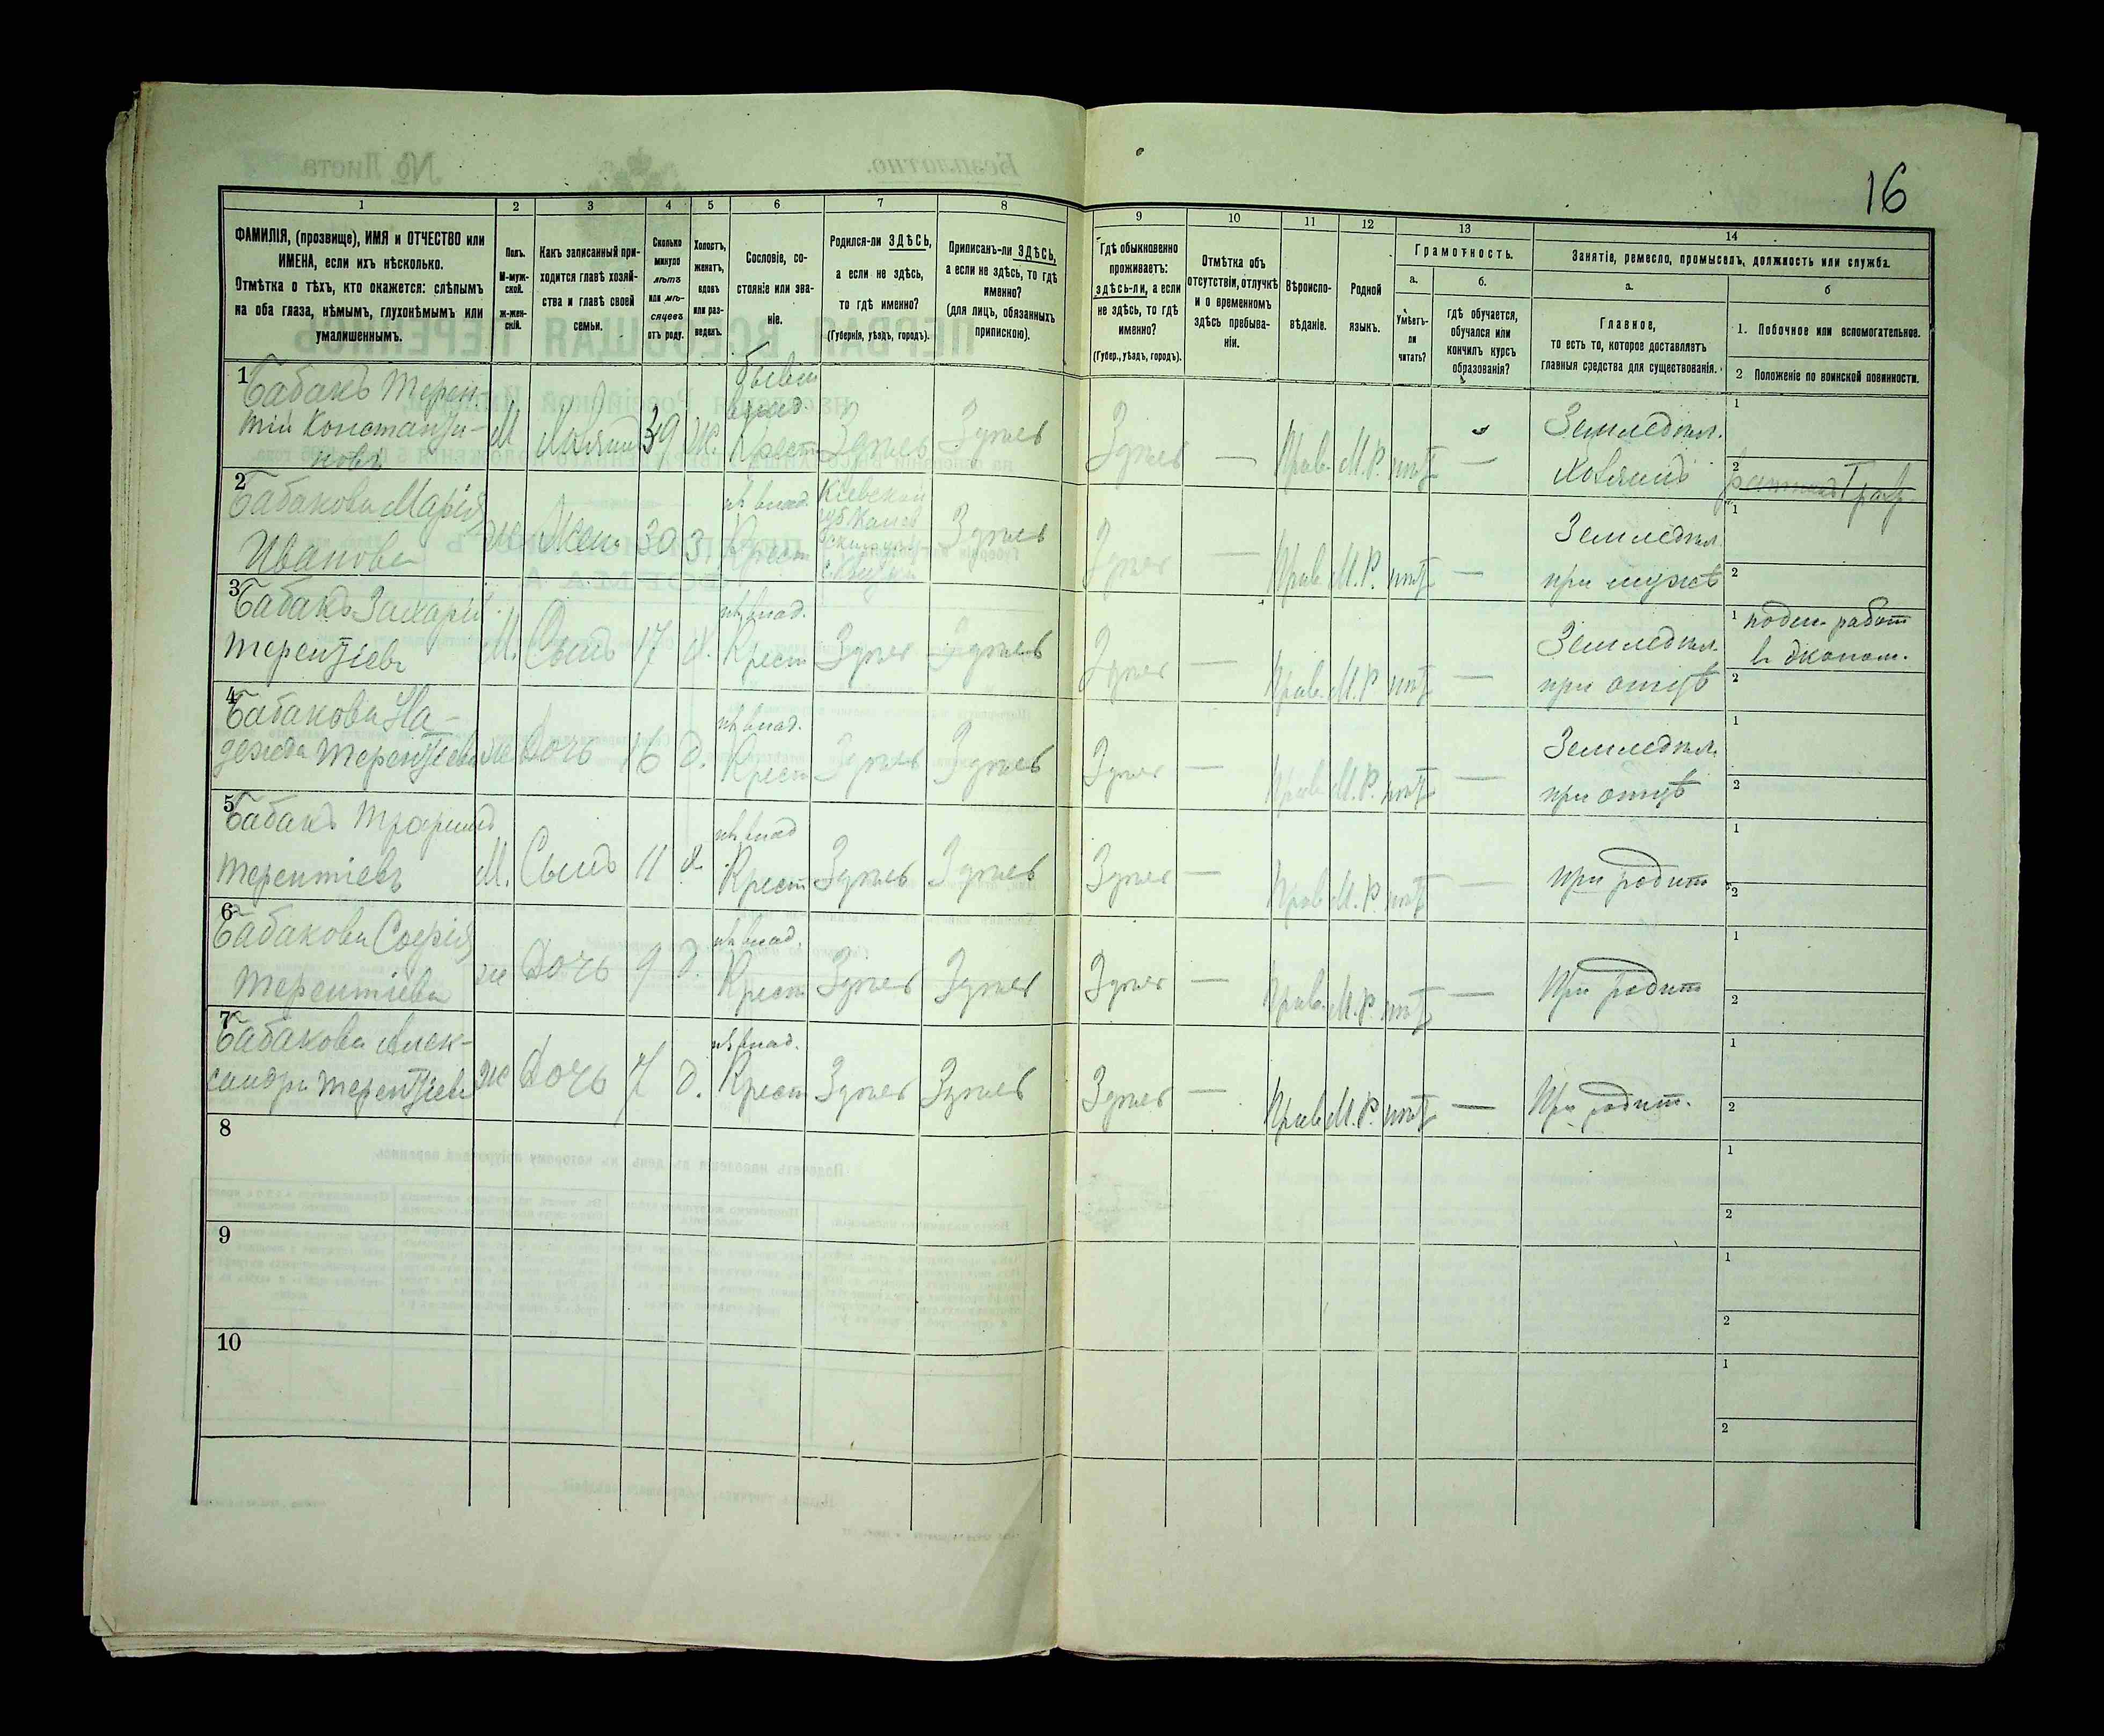 16
1
2
3
4
5
6
7
8
9
10
11
12
13
14
ФАМИЛІЯ, (прозвище), ИМЯ и ОТЧЕСТВО или
ИМЕНА, если ихъ нѣсколько.
Отмѣтка о тѣхъ, кто окажется: слѣпымъ
на оба глаза, нѣмымъ, глухонѣмымъ или
умалишеннымъ.
Полъ.
М-муж-
ской.
ж-жен-
скій.
Какъ записанный при-
ходится главѣ хозяй-
ства и главѣ своей
семьи.
Сколько
минуло
лѣтъ
или мѣ-
сяцевъ
отъ роду.
Холостъ,
женатъ,
вдовъ
или раз-
веденъ.
Сословіе, со-
стояніе или зва-
ніе.
Родился-ли ЗДѢСЬ,
а если не здѣсь,
то гдѣ именно?
(Губернія, уѣздъ, городъ).
Приписанъ-ли ЗДѢСЬ,
а если не здѣсь, то гдѣ
именно?
(для лицъ, обязанныхъ
припискою).
Гдѣ обыкновенно
проживаетъ:
здѣсь-ли, а если
не здѣсь, то гдѣ
именно?
(Губер., уѣздъ, городъ).
Отмѣтка объ
отсутствіи, отлучкѣ
и о временномъ
здѣсь пребыва-
ніи.
Вѣроиспо-
вѣданіе.
Родной
языкъ.
Грамотность.
а.
Умѣетъ-
ли
читать?
б.
гдѣ обучается,
обучался или
кончилъ курсъ
образованія?
Занятіе, ремесло, промыселъ, должность или служба.
а.
Главное,
то есть то, которое доставляетъ
главныя средства для существованія.
б
1. Побочное или вспомогательное.
2 Положеніе по воинской повинности.
1
Бабакъ Терен-
тій Константи-
новъ
М
Хозяинъ
39
Ж.
бывш
влад.
Крест
Здѣсь
Здѣсь
Здѣсь
—
Прав.
М.Р.
нѣтъ
—
Земледѣл.
Хозяинъ
1
2
2
Бабакова Марія
Иванова
Ж
Жена
30
З
Крест
Кіевской
губ Канев
Здѣсь
Здѣсь
—
Прав.
М.Р.
нѣтъ
—
Земледѣл.
при мужѣ
1
2
3
Бабакъ Захарій
Терентіевъ
М.
Сынъ
17
Х.
Крест
Здѣсь
Здѣсь
Здѣсь
—
Прав.
М.Р.
нѣтъ
—
Земледѣл.
при отцѣ
1 поден. работ
в эконом.
2
4
Бабакова На-
дежда Терентіева
Ж
Дочь
16
д.
Крест
Здѣсь
Здѣсь
Здѣсь
—
Прав.
М.Р.
нѣтъ
—
Земледѣл.
при отцѣ
1
2
5
Бабакъ
Терентіевъ
М.
Сынъ
11
х.
Крест
Здѣсь
Здѣсь
Здѣсь
—
Прав.
М.Р.
нѣтъ
—
при родит
1
2
6
Бабакова Софія
Терентіева
Ж
Дочь
9
д.
Крест
Здѣсь
Здѣсь
Здѣсь
—
Прав.
М.Р.
нѣтъ
—
При родит
1
2
7
Бабакова Алек-
сандра Терентіева
Ж
Дочь
7
д.
Крест
Здѣсь
Здѣсь
Здѣсь
—
Прав.
М.Р.
нѣтъ
—
При родит.
1
2
8
1
2
9
1
2
10
1
2